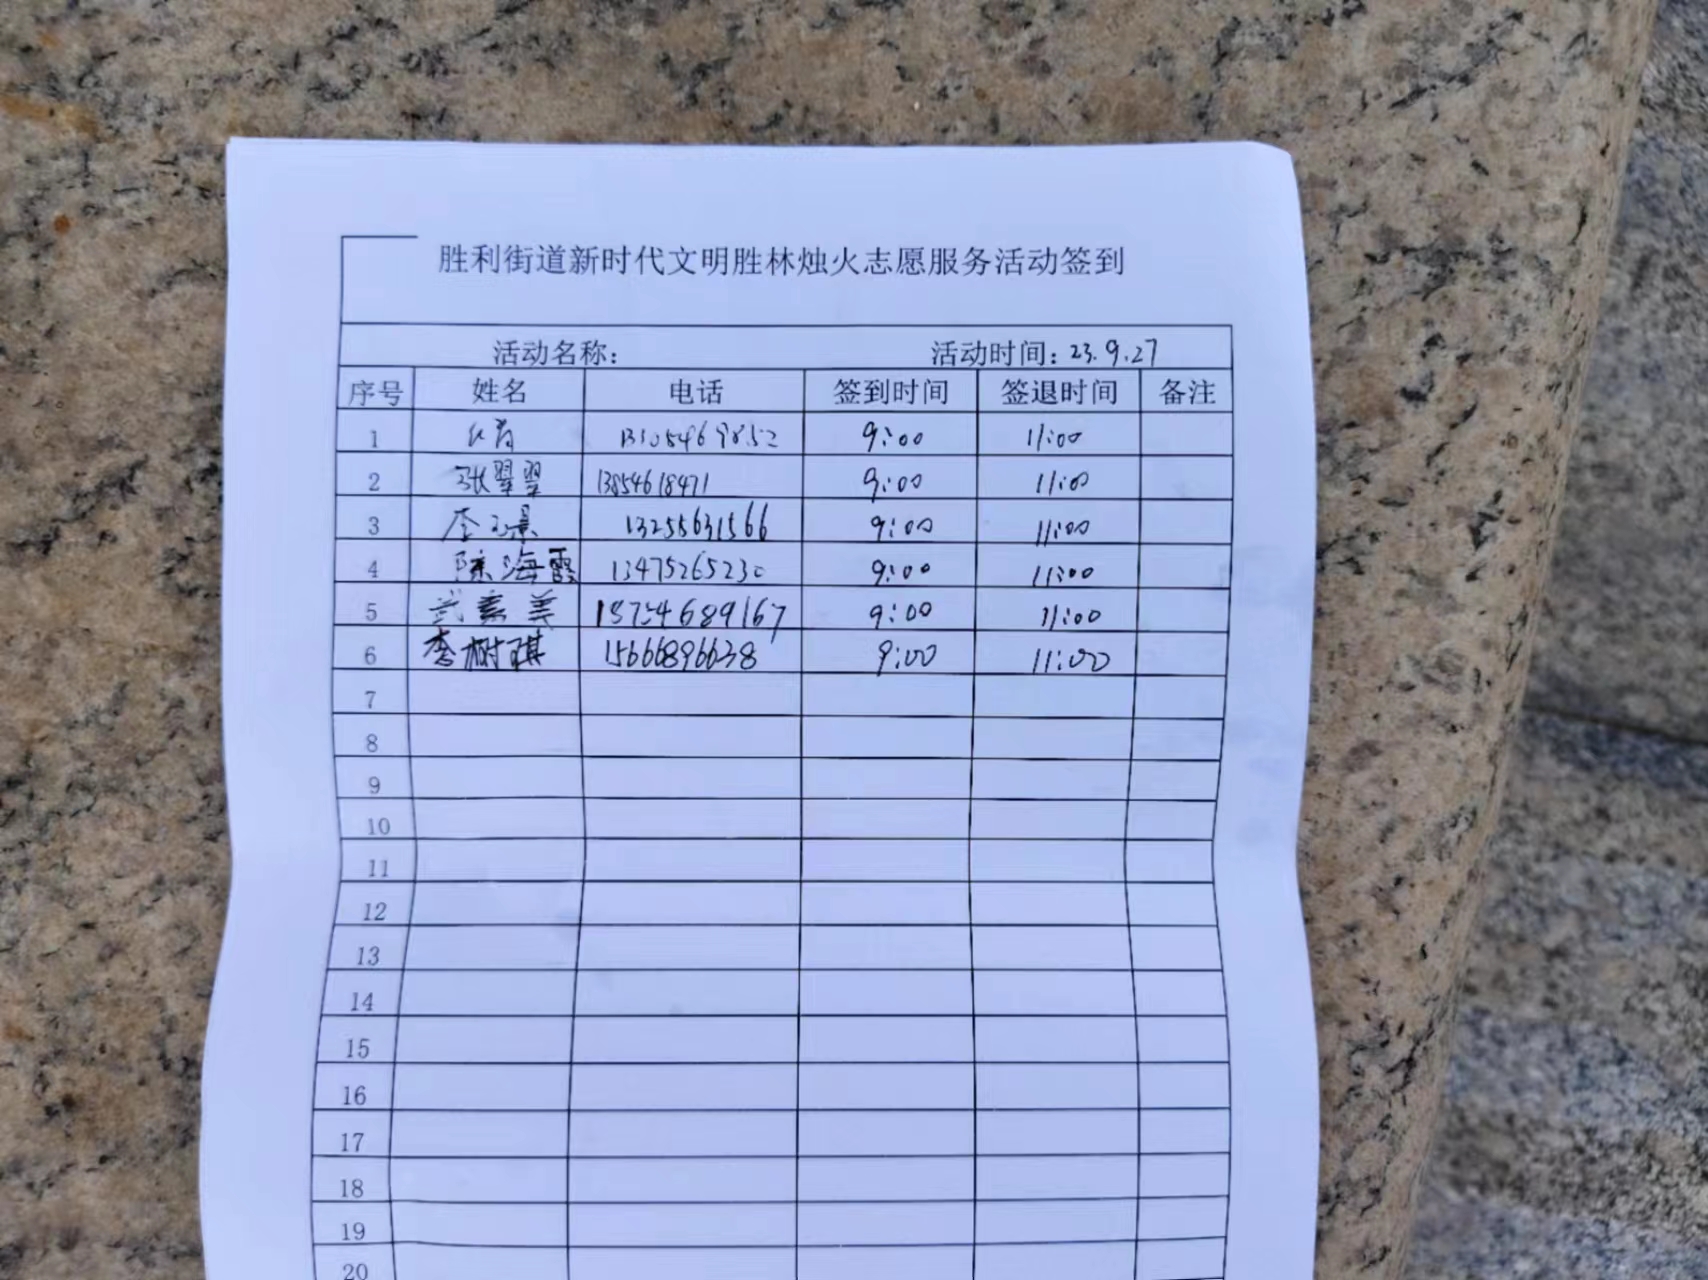 胜利街道新时代文明胜林烛火志愿服务活动签到
活动名称: 活动时间:23.9.27
序号 姓名 电话 签到时间 签退时间 备注
1 13105469852 9:00 11:00
2 张翠翠 13854618471 9:00 11:00
3 13255631566 9:00 11:00
4 陈海霞 13475265230 9:00 11:00
5 武素美 18754689167 9:00 11:00
6 李树琪 15666896638 9:00 11:00
7
8
9
10
11
12
13
14
15
16
17
18
19
20